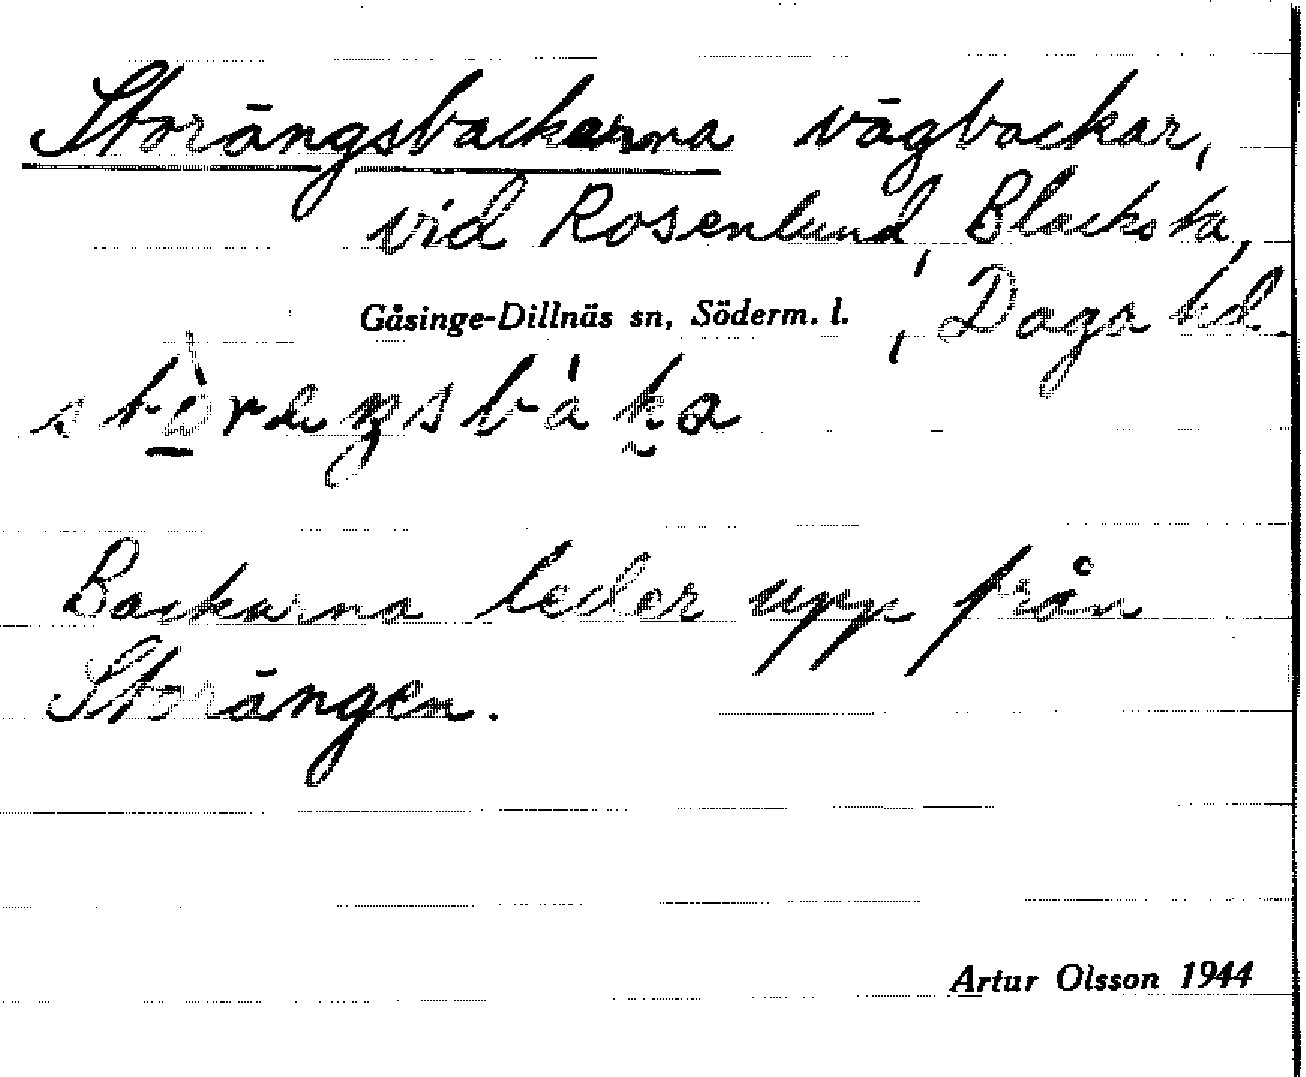 Storängsbackarna vägbackar,
vid Rosenlund, Blacksta,
Gåsinge-Dillnäs sn, Söderm. l., Daga hd.
Backarna leder upp från
Storängen.
Artur Olsson 1944